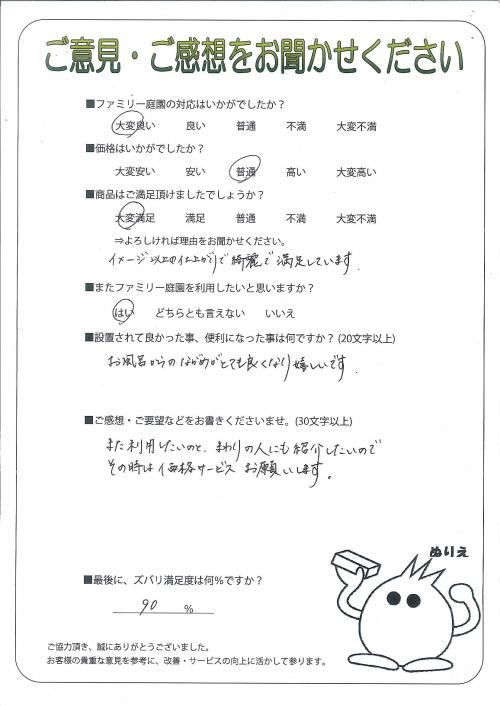 ご意見・ご感想をお聞かせください
■ファミリー庭園の対応はいかがでしたか？
大変良い 良い 普通 不満 大変不満
■価格はいかがでしたか？
大変安い 安い 普通 高い 大変高い
■商品はご満足頂けましたでしょうか？
大変満足 満足 普通 不満 大変不満
⇒よろしければ理由をお聞かせください。
イメージ以上の仕上がりで綺麗で満足しています.
■またファミリー庭園を利用したいと思いますか？
はい どちらとも言えない いいえ
■設置されて良かった事、便利になった事は何ですか？(20文字以上)
お風呂からのながめがとても良くなり嬉しいです.
■ご感想・ご要望などをお書きくださいませ。(30文字以上)
また利用したいのと、まわりの人にも紹介したいので
その時は価格サービスお願いします。
ぬりえ
■最後に、ズバリ満足度は何％ですか？
90 %
ご協力頂き、誠にありがとうございました。
お客様の貴重な意見を参考に、改善・サービスの向上に活かして参ります。